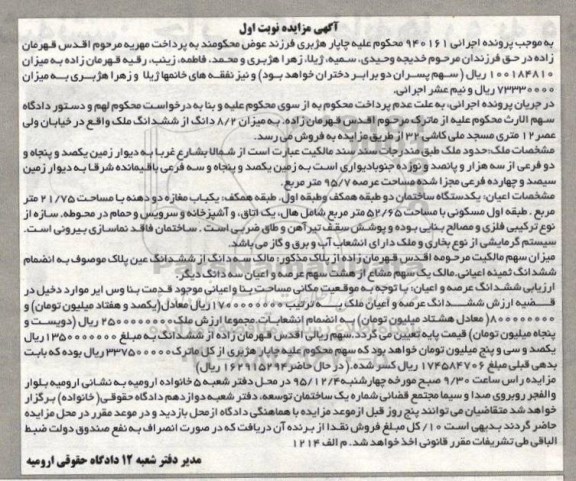 آگهی مزایده نوبت اول
به موجب پرونده اجرائی ۹۴۰۱۶۱ محکوم علیه چاپار هژبری فرزند عوض محکومند به پرداخت مهریه مرحوم اقدس قهرمان
زاده در حق فرزندان مرحوم خدیجه وحیدی، سمیه، ژیلا، زهرا هژبری و محمد، فاطمه، زینب، رقیه قهرمان زاده به میزان
۱۰۰۱۸۴۸۱۰ ریال (سهم پسران دو برابر دختران خواهد بود) و نیز نفقه های خانمها ژیلا و زهرا هژبری به میزان
۷۳۳۳۰۰۰۰ ریال و نیم عشر اجرائی.
در جریان پرونده اجرائی، به علت عدم پرداخت محکوم به از سوی محکوم علیه و بنا به درخواست محکوم لهم و دستور دادگاه
سهم الارث محکوم علیه از ماترک مرحوم اقدس قهرمان زاده، به میزان ۸/۲ دانگ از ششدانگ ملک واقع در خیابان ولی
عصر ۱۲ متری مسجد ملی کاشی ۳۲ از طریق مزایده به فروش می رسد.
مشخصات ملک: حدود ملک طبق مندرجات سند سند مالکیت عبارت است از شمالا بشارع غربا به دیوار زمین یکصد و پنجاه و
دو فرعی از سه هزار و پانصد و نوزده جنوبا دیواری است به زمین یکصد و پنجاه و سه فرعی باقیمانده شرقا به دیوار زمین
سیصد و چهارده فرعی مجزا شده مساحت عرصه ۹۵/۷ متر مربع.
مشخصات اعیان: یکدستگاه ساختمان دو طبقه همکف و طبقه اول. طبقه همکف: یکباب مغازه دو دهنه با مساحت ۲۱/۷۵ متر
مربع. طبقه اول مسکونی با مساحت ۵۲/۶۵ متر مربع شامل هال، یک اتاق، و آشپزخانه و سرویس و حمام در محوطه. سازه از
نوع ترکیبی فلزی و مصالح بنایی بوده و پوشش سقف تیرآهن و طاق ضربی است. ساختمان فاقد نماسازی بیرونی است.
سیستم گرمایشی از نوع بخاری و ملک دارای انشعاب آب و برق و گاز می باشد.
میزان سهم مالکیت مرحومه اقدس قهرمان زاده از پلاک مذکور: مالک سه دانگ از ششدانگ عین پلاک موصوف به انضمام
ششدانگ ثمینه اعیانی. مالک یک سهم مشاع از هشت سهم عرصه و اعیان سه دانگ دیگر.
ارزیابی ششدانگ عرصه و اعیان: با توجه به موقعیت مکانی مساحت بنا و اعیانی موجود قدمت بنا و سایر موارد دخیل در
قضیه ارزش ششدانگ عرصه و اعیان ملک به ترتیب ۱۷۰۰۰۰۰۰۰۰ ریال معادل (یکصد و هفتاد میلیون تومان) و
۸۰۰۰۰۰۰۰۰ (معادل هشتاد میلیون تومان) به انضمام انشعابات. مجموعا ارزش ملک ۲۵۰۰۰۰۰۰۰۰ ریال (دویست و
پنجاه میلیون تومان) قیمت پایه تعیین می گردد. سهم ریالی اقدس قهرمان زاده از ششدانگ به مبلغ ۱۳۵۰۰۰۰۰۰۰ ریال
یکصد و سی و پنج میلیون تومان خواهد بود که سهم محکوم علیه چاپار هژبری از کل ماترک ۳۳۷۵۰۰۰۰۰ ریال بوده که بابت
بدهی قبلی مبلغ ۱۷۴۵۸۴۷۰۶ ریال کسر شده. (در حال حاضر ۱۶۲۹۱۵۲۹۴ ریال)
مزایده راس ساعت ۹/۳۰ صبح مورخه چهارشنبه ۹۵/۱۲/۴ در محل دفتر شعبه ۵ خانواده ارومیه به نشانی ارومیه بلوار
والفجر روبروی صدا و سیما مجتمع قضائی شماره یک ساختمان توسعه، دفتر شعبه دوازدهم دادگاه حقوقی (خانواده) برگزار
خواهد شد متقاضیان می توانند پنج روز قبل از موعد مزایده با هماهنگی دادگاه از محل بازدید و در موعد مقرر در محل مزایده
حاضر گردند بدیهی است ۱۰/ کل مبلغ فروش نقدا از برنده آن دریافت که در صورت انصراف به نفع صندوق دولت ضبط
الباقی طی تشریفات مقرر قانونی اخذ خواهد شد. م الف ۱۲۱۴
مدیر دفتر شعبه ۱۲ دادگاه حقوقی ارومیه